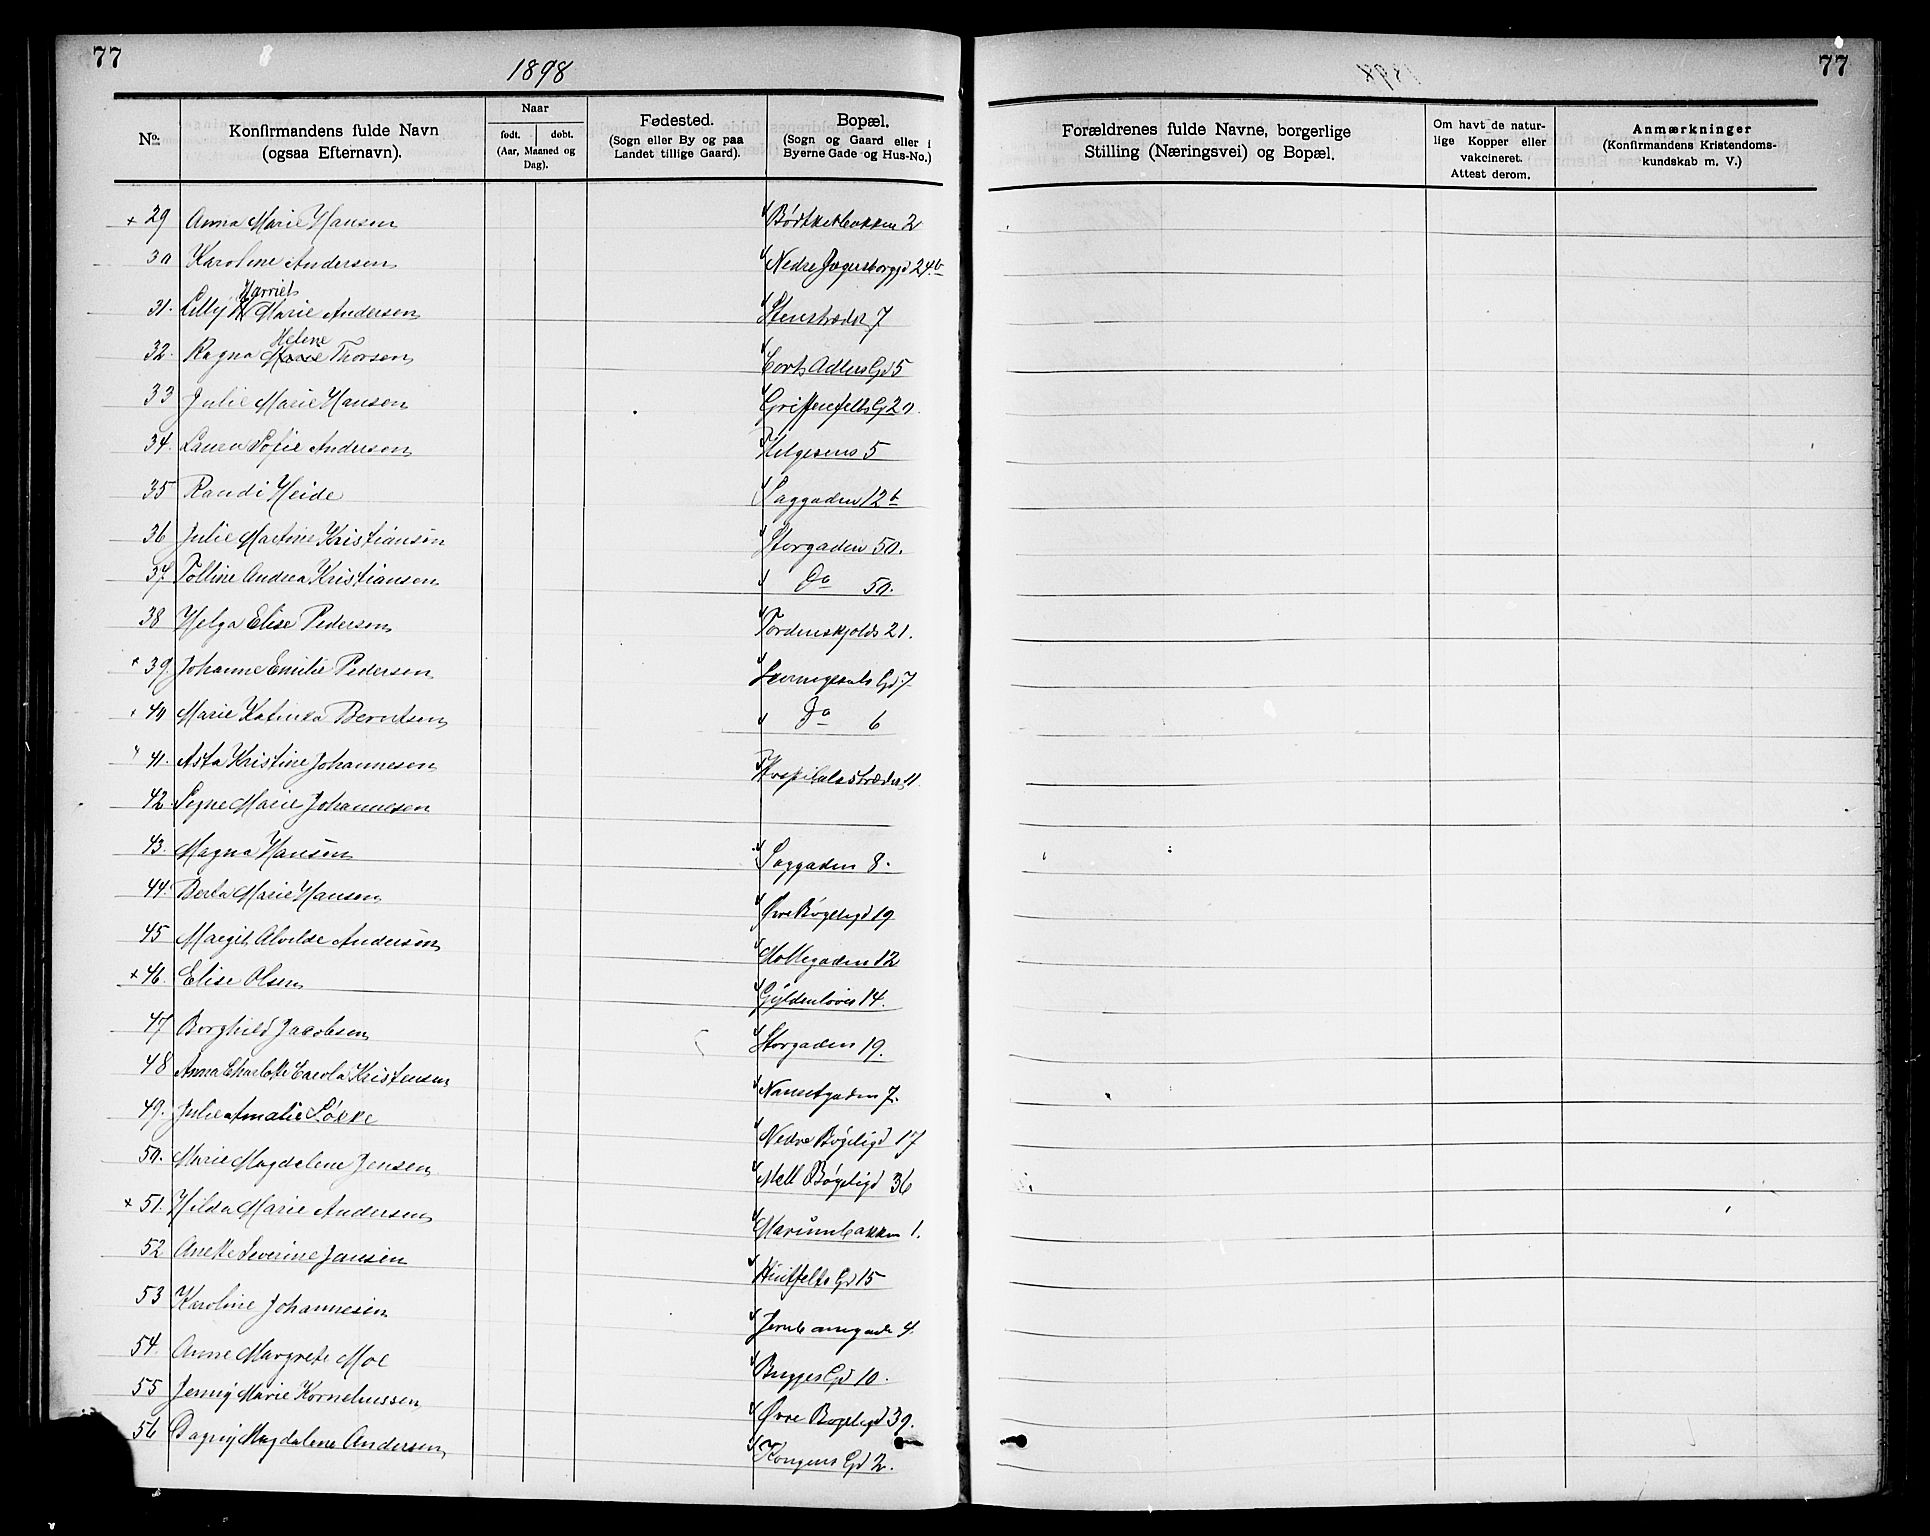 77
1898
No.
Konfirmandens fulde Navn
(ogsaa Efternavn).
Naar
født. døbt.
(Aar, Maaned og
Dag).
Fødested.
(Sogn eller By og paa
Landet tillige Gaard).
Bopæl.
(Sogn og Gaard eller i
Byerne Gade og Hus-No.)
77
Forældrenes fulde Navne, borgerlige
Stilling (Næringsvei) og Bopæl.
Om havt de natur-
lige Kopper eller
vakcineret.
Attest derom.
Anmærkninger
(Konfirmandens Kristendoms-
kundskab m. V.)
+ 29 Anna Marie Hansen Bødtkerbakken 2
30 Karoline Andersen Nedre Jægersborggd 24b
Harriet
31. Lilly Marie Andersen Stenstrædet 7
Helene
32. Ragna Marie Thorsen Corts Adlers Gd 5
33 Julie Marie Hansen Griffenfelts G 20.
34. Laura Sofie Andersen Helgesens 5
35 Randi Heide Saggaden 12b
36 Julie Martine Kristiansen Storgaden 50.
37. Tolline Andrea Kristiansen Do 50.
38 Helga Elise Pedersen Tordenskjolds 21.
+ 39. Johanne Emilie Pedersen Gd 7
40 Marie Katinka Berntsen Do 6
41. Asta Kristine Johannesen Hospitalsstrædet 11
42. Signe Marie Johannesen
43. Magna Hansen Saggaden 8.
44. Berta Marie Hansen Øvre Bøgeligd 19
45 Margit Alvilde Andersen Møllegaden 12
+ 46. Elise Olsen Gyldenløves 14.
47 Borghild Jacobsen Storgaden 19.
48 Anna Charlotte Carola Kristensen Nansetgaden 7.
49. Julie Amalie Løkke Nedre Bøgeligd 17
50. Marie Magdalene Jensen Mell Bøgeligd 36
+ 51. Hilda Marie Andersen 1.
52 Anette Severine Jansen Huitfelts Gd 15
53 Karoline Johannesen Jernbanegade 4.
54. Anne Margrete Moe Bugges Gd 10.
55 Jenny Marie Korneliussen Øvre Bøgeligd 39.
56 Dagny Magdalene Andersen Kongens Gd 2.